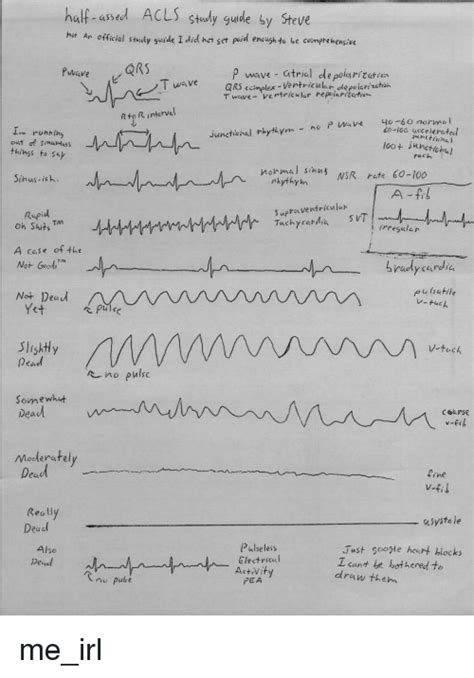 half-assed ACLS study guide by Steve
not An official study guide I did not get paid enough to be comprehensive
P wave
QRS
T wave
R to R interval
P wave - atrial depolarization
QRS complex - Ventricular depolarization
T wave - ventricular repolarization
I'm running out of smartass things to say
Junctional rhythym - no P wave
40-60 normal
60-100 accelerated junctional
100+ junctional tach
Sinus-ish.
normal sinus rhythym
NSR rate 60-100
Rapid Oh Shits TM
Supraventricular Tachycardia
SVT
A-fib
irregular
A case of the Not Goods TM
bradycardia
Not Dead Yet
pulse
pulsatile V-tach
Slightly Dead
no pulse
V-tach
Somewhat Dead
coarse v-fib
Moderately Dead
fine V-fib
Really Dead
asystole
Also Dead
no pulse
Pulseless Electrical Activity PEA
Just google heart blocks
I cant be bothered to draw them
me_irl